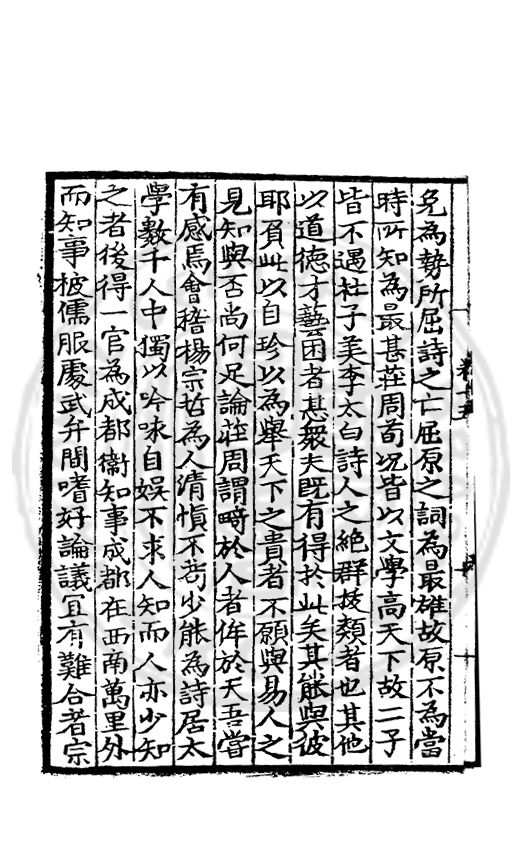 免為勢所屈詩之亡屈原之詞為最雄故原不為當
時所知為最甚莊周荀况皆以文學高天下故二子
皆不遇杜子美李太白詩人之絕群拔類者也其他
以道德才藝困者甚衆夫既有得於此矣其能與彼
耶負此以自珍以為舉天下之貴者不願與易人之
見知與否尚何足論莊周謂畸於人者侔於天吾當
有感焉會稽楊宗哲為人清慎不苟少能為詩居太
學數千人中獨以吟咏自娛不求人知而人亦少知
之者後得一官為成都衞知事成都在西南萬里外
而知事被儒服處武弁間嗜好論議宜有難合者宗
卷十五
十